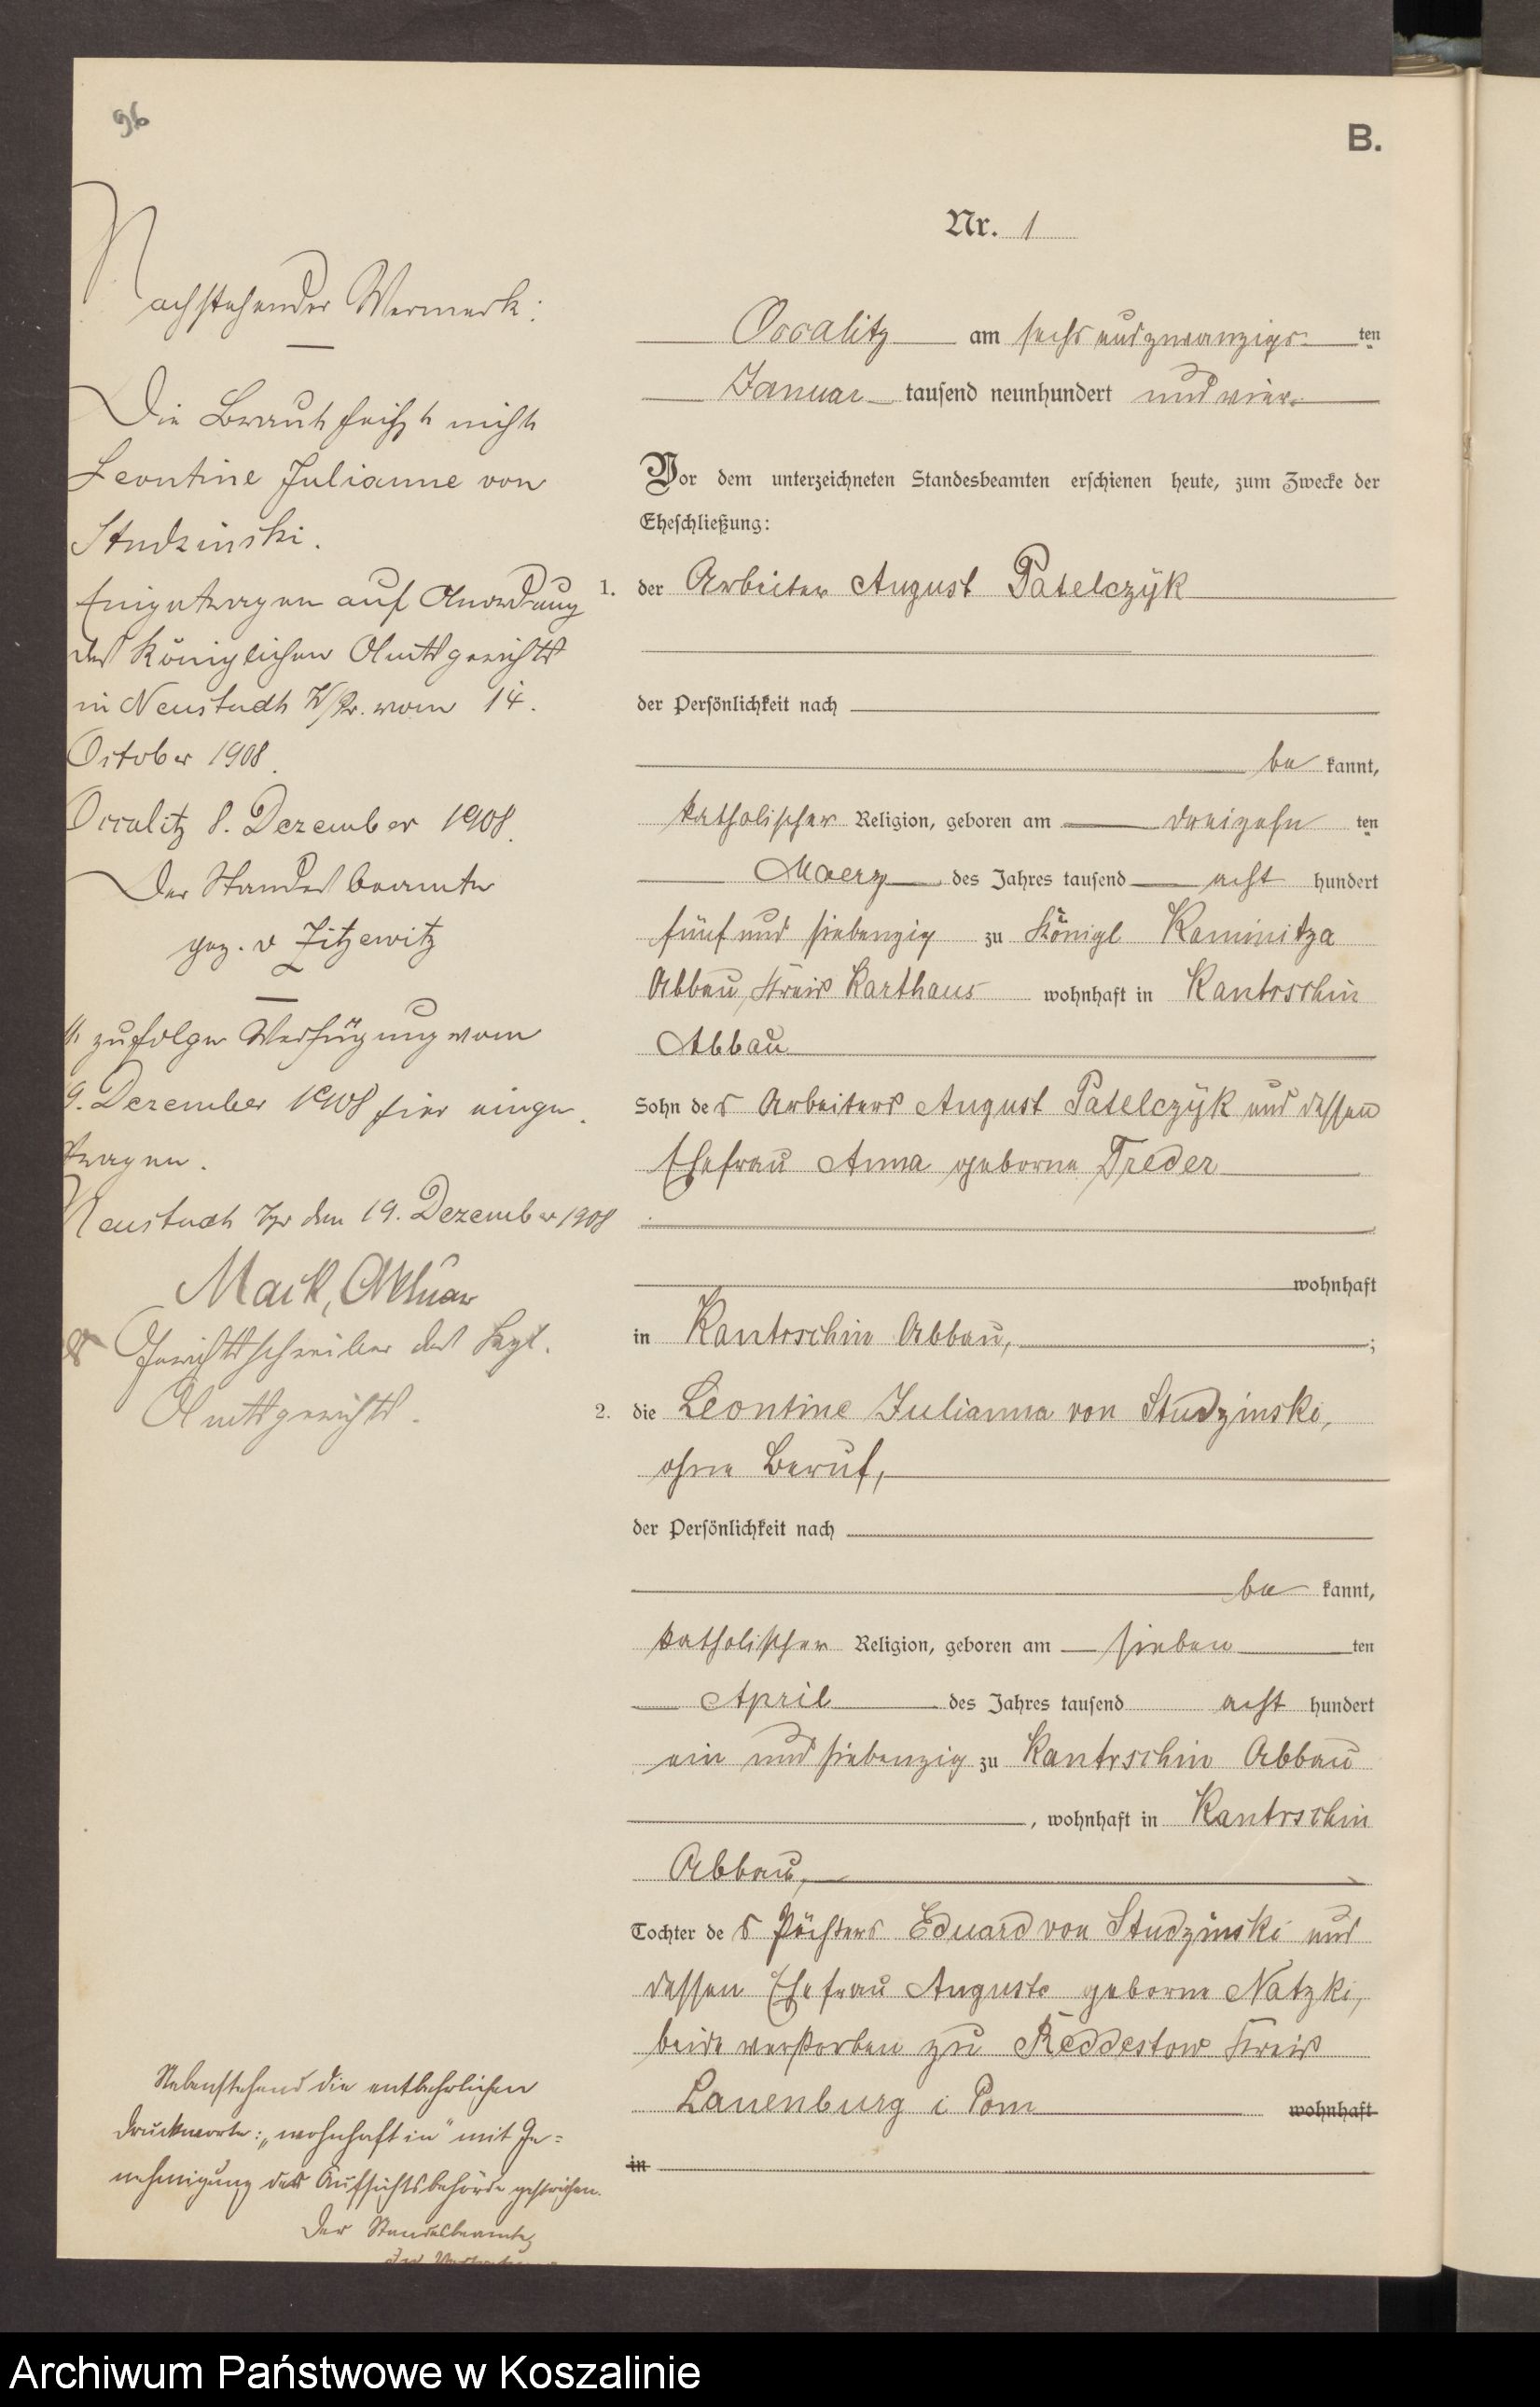 96
B.
Nr. 1
Nachstehender Vermerk:
Die Braut heißt nicht
Leontine Julianne von
Studzinski.
Eingetragen auf Anordnung
des Königlichen Amtsgerichts
in Neustadt W/Pr. vom 14.
October 1908.
Occalitz 8. Dezember 1908.
Der Standesbeamte
gez. v Zitzewitz
zufolge Verfügung vom
9. Dezember 1908 hier einge
tragen.
Neustadt Wpr den 19. Dezember 1908
Mack, Aktuar
Gerichtsschreiber des Kgl.
Amtsgerichts.
Nebenstehend die entbehrlichen
Druckworte: „wohnhaft in" mit Ge=
nehmigung der Aufsichtsbehörde gestrichen.
Der Standesbeamte
Occalitz am sechs und zwanzigs ten
Januar tausend neunhundert und vier
Vor dem unterzeichneten Standesbeamten erschienen heute, zum Zwecke der
Eheschließung:
1. der Arbeiter August Patelczÿk
der Persönlichkeit nach
be kannt,
katholischer Religion, geboren am dreizehn ten
Maerz des Jahres tausend acht hundert
fünf und siebenzig zu Königl Kaminitza
Abbau, Kreis Karthaus wohnhaft in Kantrschin
Abbau
Sohn des Arbeiters August Patelczÿk und dessen
Ehefrau Anna geborne Treder
wohnhaft
in Kantrschin Abbau, ;
2. die Leontine Julianna von Studzinski,
ohne Beruf,
der Persönlichkeit nach
be kannt,
katholischer Religion, geboren am sieben ten
April des Jahres tausend acht hundert
ein und siebenzig zu Kantrschin Abbau
, wohnhaft in Kantrschin
Abbau,
Tochter des Pächters Eduard von Studzinski und
dessen Ehefrau Auguste geborne Natzki,
beide verstorben zu Reddestow Kreis
Lauenburg i Pom wohnhaft
in
Archiwum Państwowe w Koszalinie